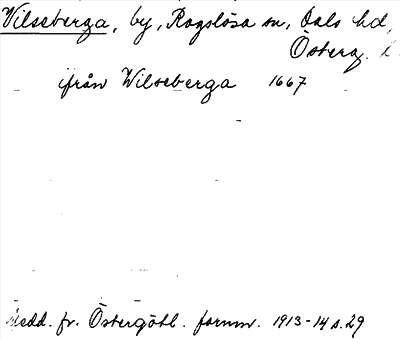 Vilseberga, by, Rogslösa sn, Dals hd,
Österg. l.
ifrån Wilseberga 1667
Medd. fr. Östergötl. fornm. 1913-14 s. 29